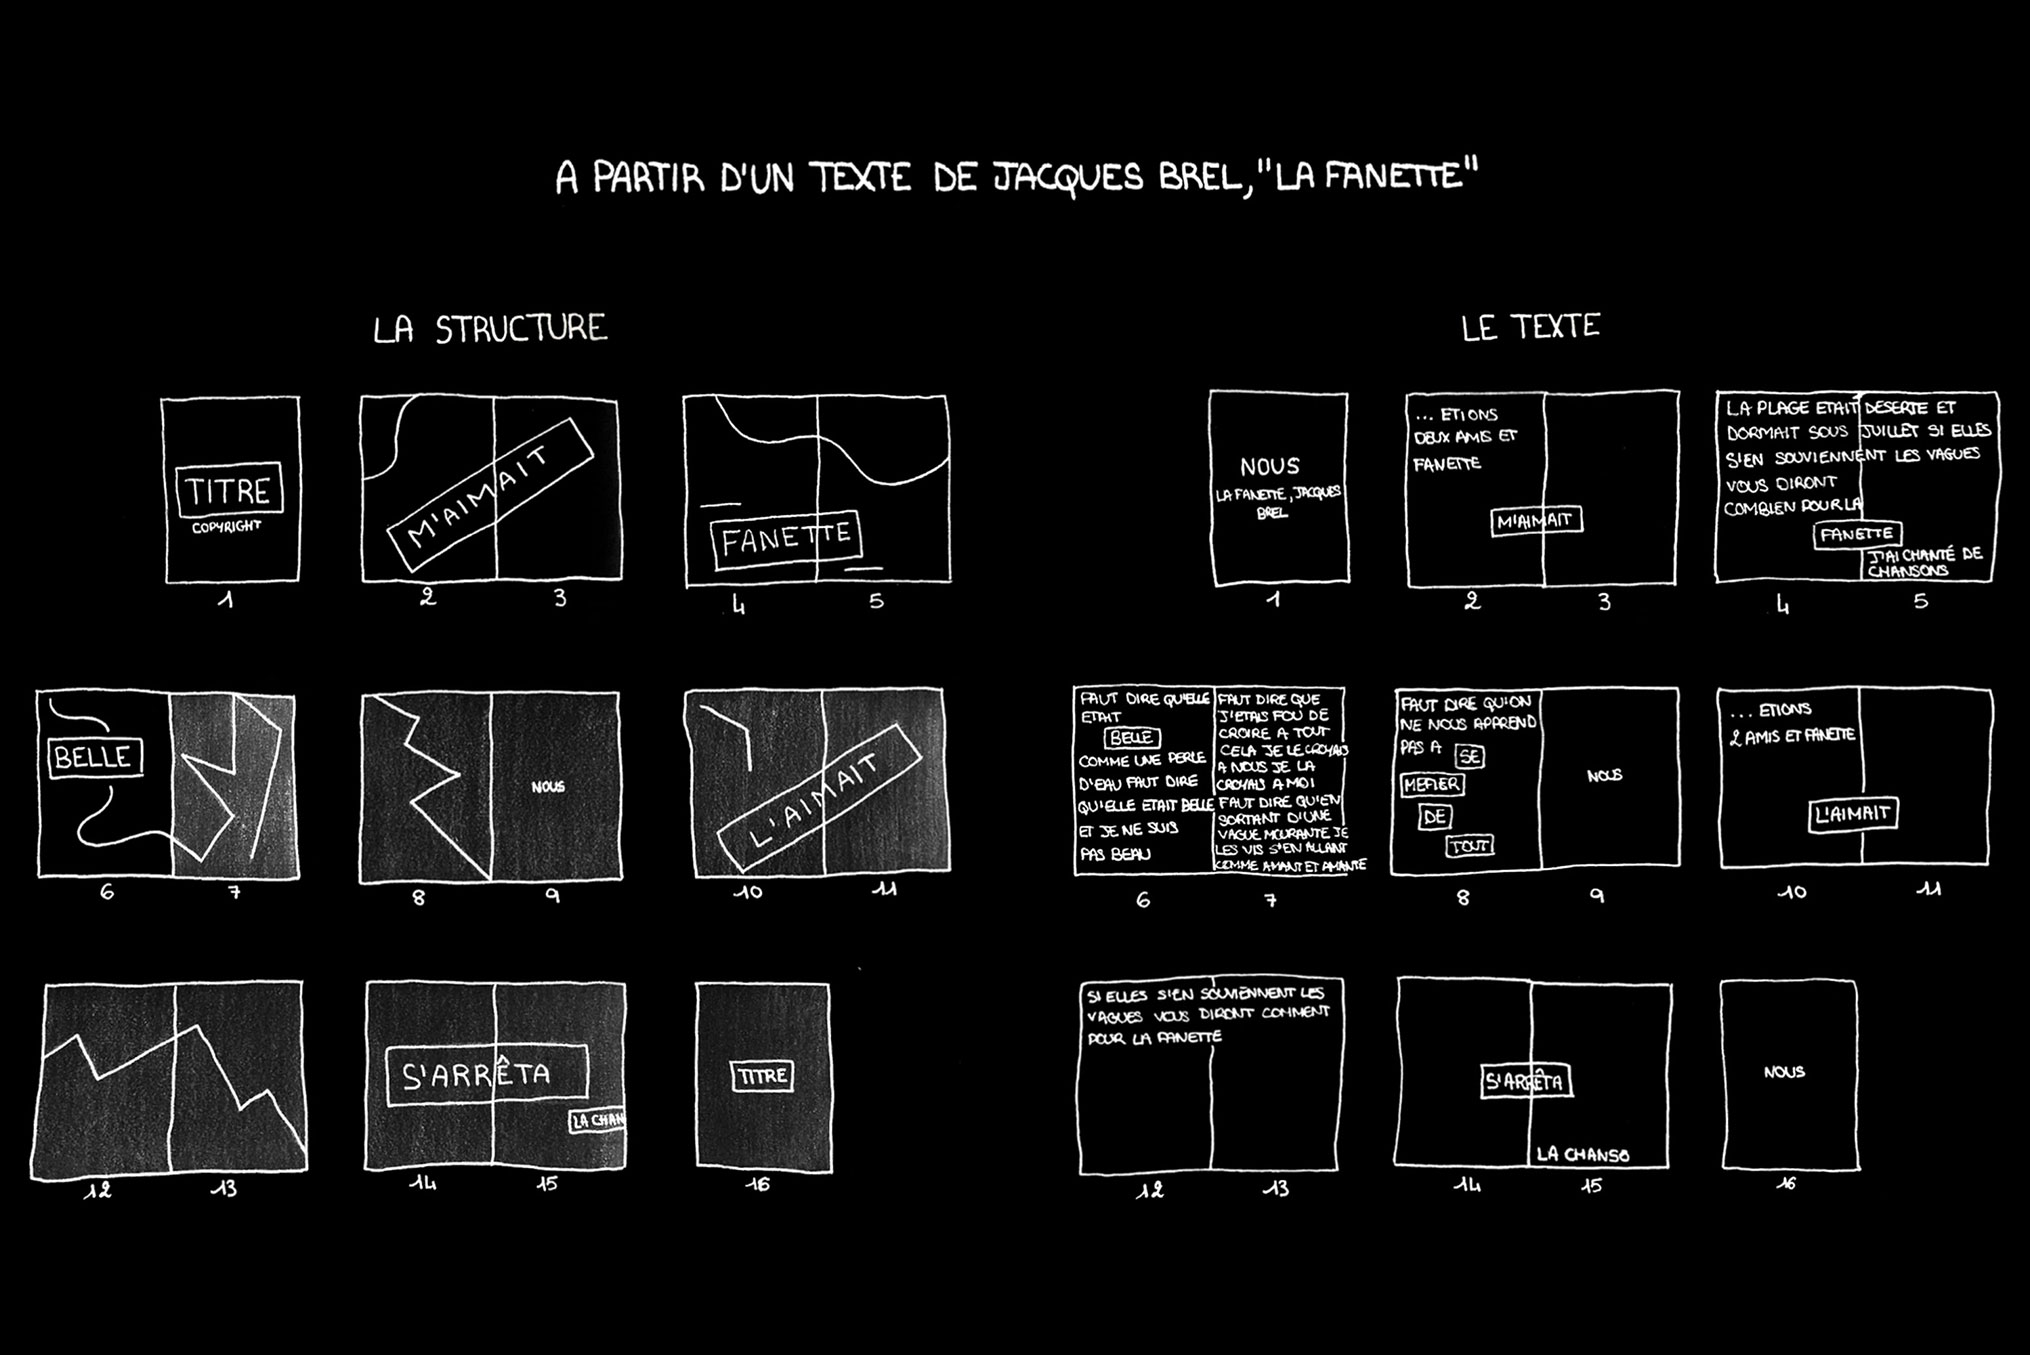 A PARTIR D'UN TEXTE DE JACQUES BREL, "LA FANETTE"
LA STRUCTURE
TITRE
COPYRIGHT
1
M'AIMAIT
2 3
FANETTE
4 5
BELLE
6 7
NOUS
8 9
L'AIMAIT
10 11
12 13
S'ARRÊTA
LA CHAN
14 15
TITRE
16
LE TEXTE
NOUS
LA FANETTE, JACQUES
BREL
1
... ETIONS
DEUX AMIS ET
FANETTE
M'AIMAIT
2 3
LA PLAGE ETAIT DESERTE ET
DORMAIT SOUS JUILLET SI ELLES
S'EN SOUVIENNENT LES VAGUES
VOUS DIRONT
COMBIEN POUR LA
FANETTE
J'AI CHANTÉ DE
CHANSONS
4 5
FAUT DIRE QU'ELLE
ETAIT
BELLE
COMME UNE PERLE
D'EAU FAUT DIRE
QU'ELLE ETAIT BELLE
ET JE NE SUIS
PAS BEAU
FAUT DIRE QUE
J'ETAIS FOU DE
CROIRE A TOUT
CELA JE LE CROYAIS
A NOUS JE LA
CROYAIS A MOI
FAUT DIRE QU'EN
SORTANT D'UNE
VAGUE MOURANTE JE
LES VIS S'EN ALLANT
COMME AMANT ET AMANTE
6 7
FAUT DIRE QU'ON
NE NOUS APPREND
PAS A SE
MEFIER
DE
TOUT
NOUS
8 9
... ETIONS
2 AMIS ET FANETTE
L'AIMAIT
10 11
SI ELLES S'EN SOUVIENNENT LES
VAGUES VOUS DIRONT COMMENT
POUR LA FANETTE
12 13
S'ARRÊTA
LA CHANSO
14 15
NOUS
16